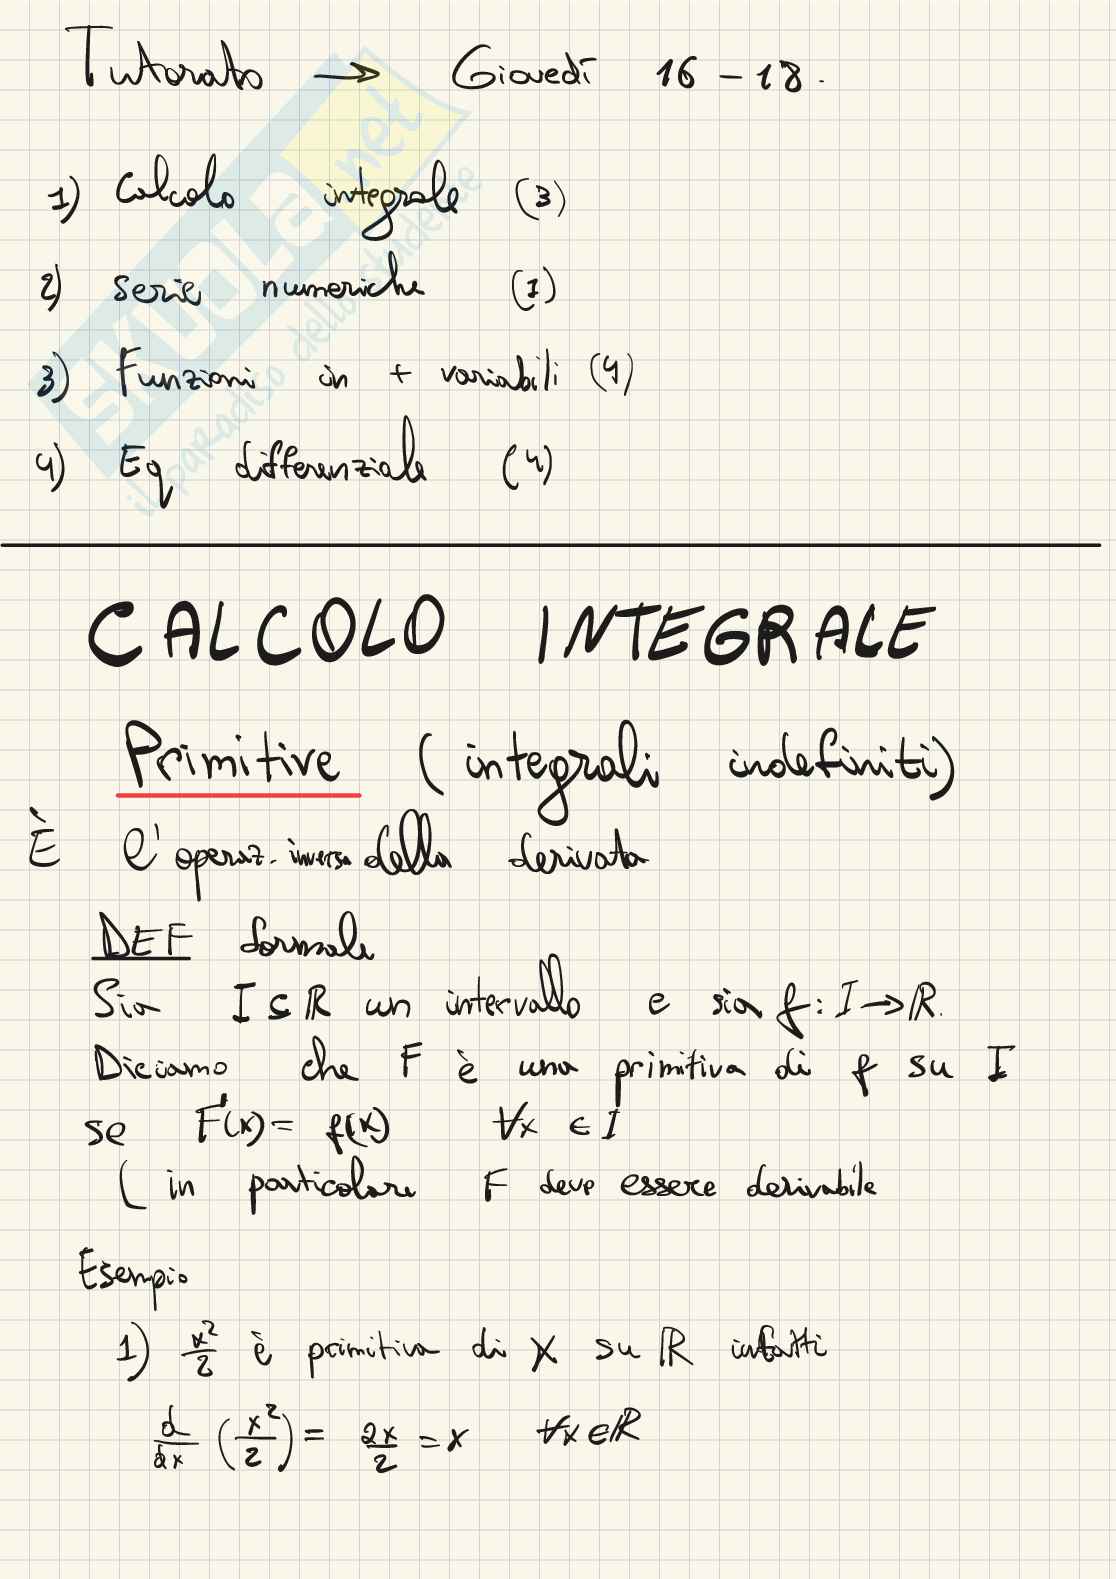 Tutorato → Giovedì 16 - 18.
1) Calcolo integrale (3)
2) serie numeriche (1)
3) Funzioni in + variabili (4)
4) Eq differenziale (4)
SKUOLA.net
il paradiso dello studente
CALCOLO INTEGRALE
Primitive (integrali indefiniti)
È l'operaz. inversa della derivata
DEF formale
Sia I ⊆ ℝ un intervallo e sia f: I → ℝ.
Diciamo che F è una primitiva di f su I
se F'(x) = f(x) ∀x ∈ I
( in particolare F deve essere derivabile
Esempio
1) x²/2 è primitiva di x su ℝ infatti
d/dx (x²/2) = 2x/2 = x ∀x ∈ ℝ